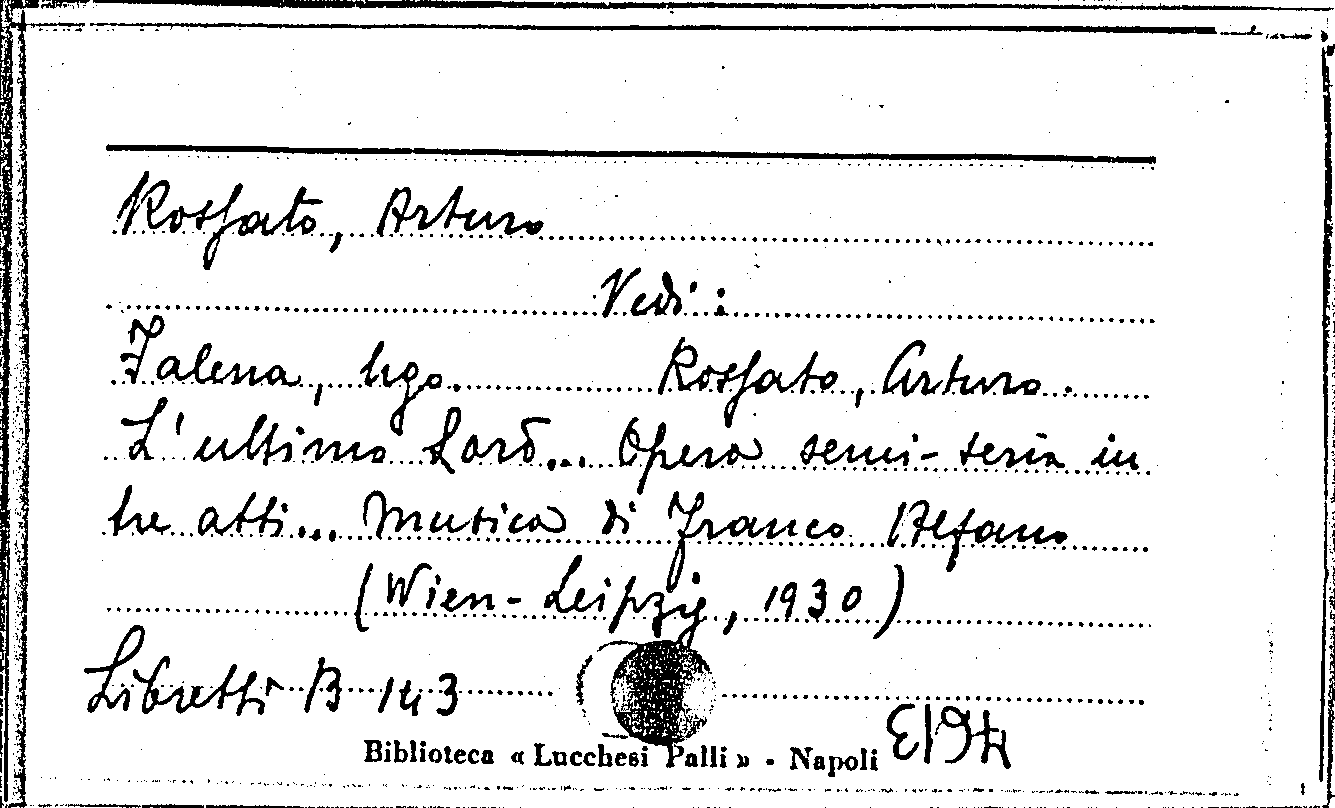 Rossato, Arturo
Vedi:
Falena, Ugo. Rossato, Arturo.
L'ultimo Lord... Opera semi-seria in
tre atti... Musica di Franco Alfano
(Wien-Leipzig, 1930)
Libretti B 143
Biblioteca « Lucchesi Palli » - Napoli